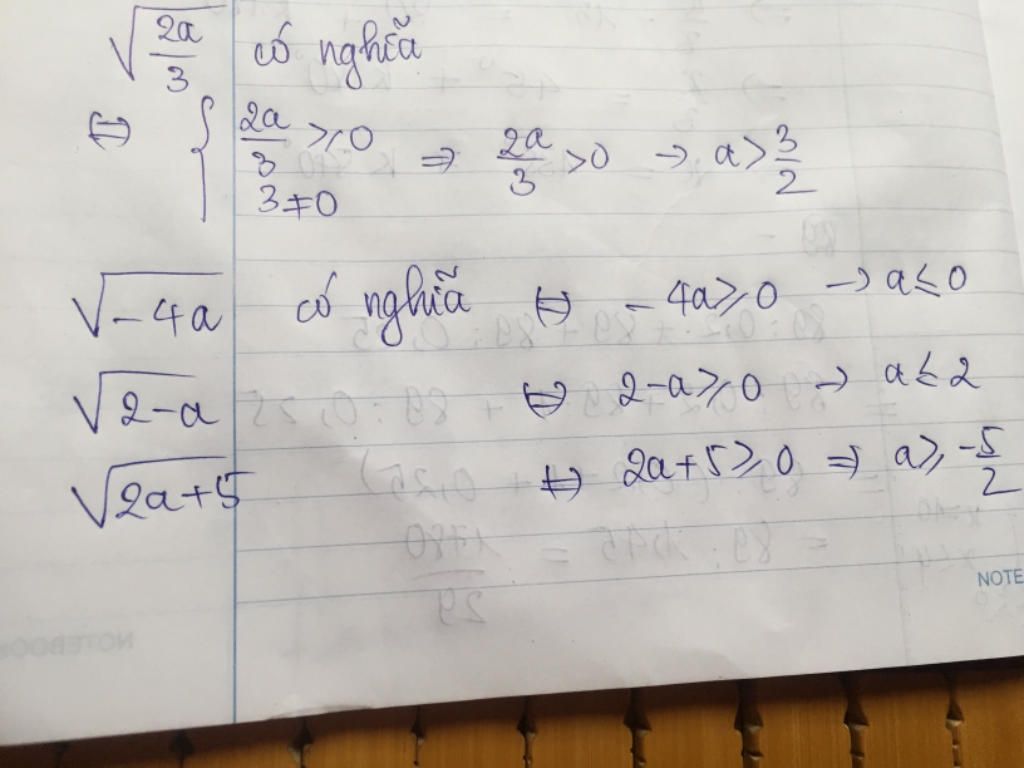 √(2a/3) có nghĩa
⇔ { 2a/3 ≥ 0 ⇒ 2a/3 > 0 → a > 3/2
3 ≠ 0
√(-4a) có nghĩa ⇔ -4a ≥ 0 → a ≤ 0
√(2-a) ⇔ 2-a ≥ 0 → a ≤ 2
√(2a+5) ⇔ 2a+5 ≥ 0 ⇒ a ≥ -5/2
NOTE